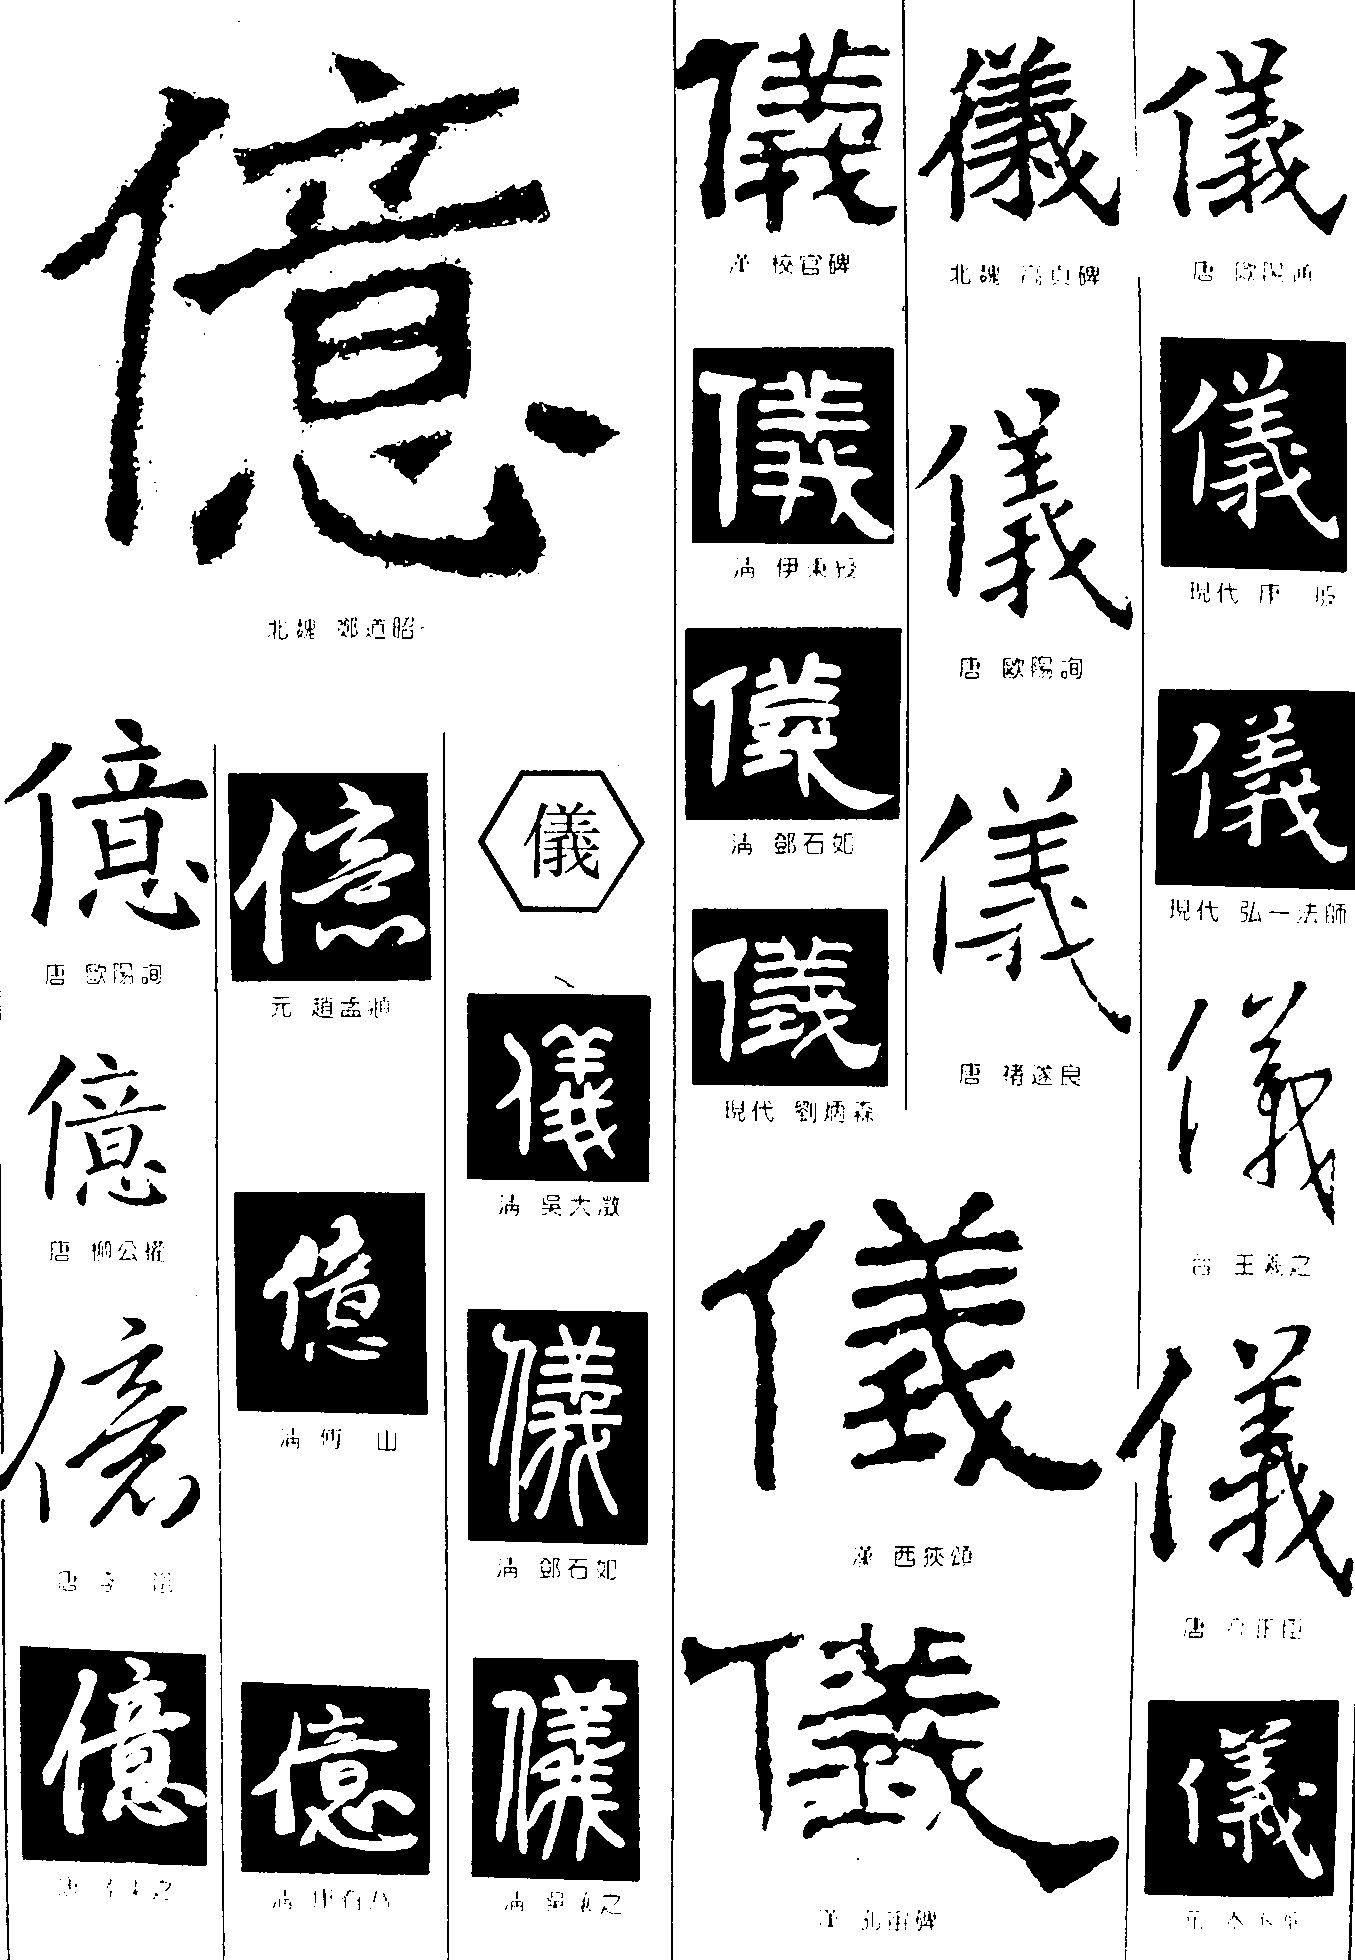 億
北魏 鄭道昭
億
唐 歐陽詢
億
唐 柳公權
億
唐
億
唐
億
元 趙孟頫
億
清 傅 山
億
清
儀
儀
清 吳大澂
儀
清 鄧石如
儀
清 吳 之
儀
漢 校官碑
儀
清 伊秉綬
儀
清 鄧石如
儀
現代 劉炳森
儀
北魏 高貞碑
儀
唐 歐陽詢
儀
唐 褚遂良
儀
漢 西狹頌
儀
漢 孔宙碑
儀
唐 歐陽通
儀
現代
儀
現代 弘一法師
儀
晉 王羲之
儀
唐
儀
元